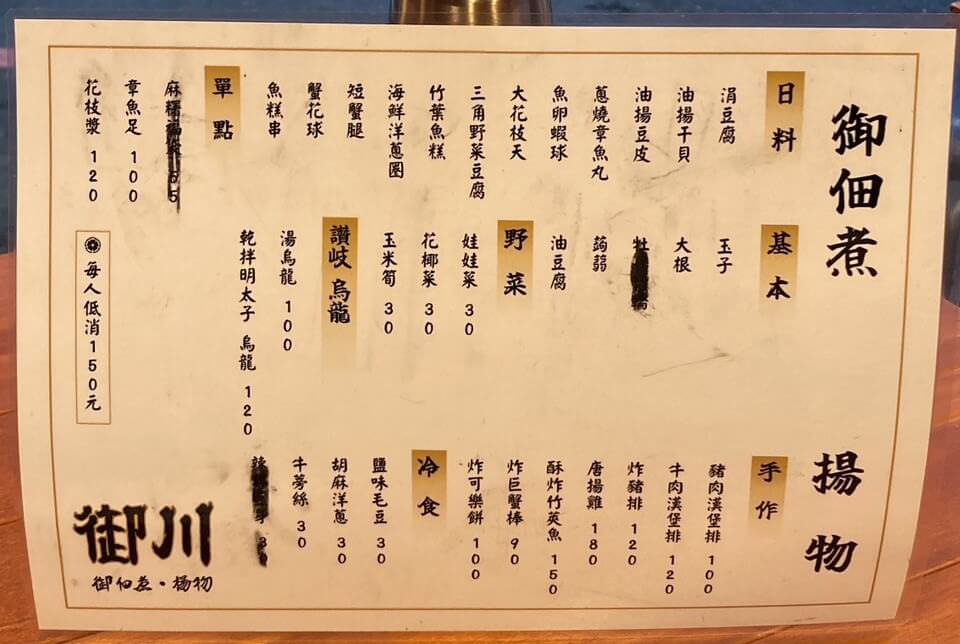 御佃煮
日料
涓豆腐
油揚干貝
油揚豆皮
蔥燒章魚丸
魚卵蝦球
大花枝天
三角野菜豆腐
竹葉魚糕
海鮮洋蔥圈
短蟹腿
蟹花球
魚糕串
單點
章魚足 100
花枝漿 120
基本
玉子
大根
蒟蒻
油豆腐
野菜
娃娃菜 30
花椰菜 30
玉米筍 30
讚岐烏龍
湯烏龍 100
乾拌明太子 烏龍 120
每人低消150元
揚物
手作
豬肉漢堡排 100
牛肉漢堡排 120
炸豬排 120
唐揚雞 180
酥炸竹莢魚 150
炸巨蟹棒 90
炸可樂餅 100
冷食
鹽味毛豆 30
胡麻洋蔥 30
牛蒡絲 30
御川
御佃煮・揚物